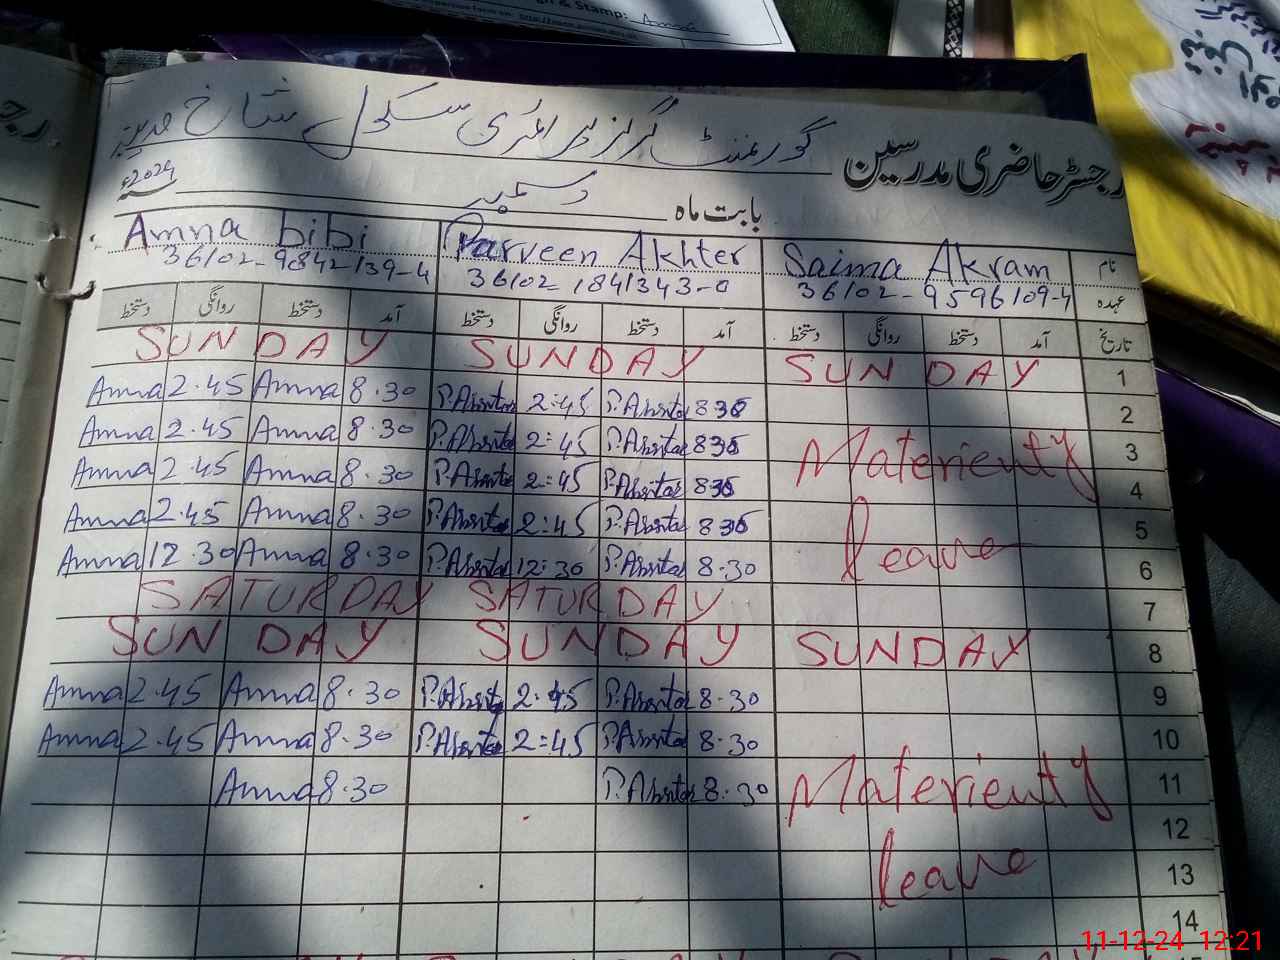 & Stamp: Amna
رجسٹر حاضری مدرسین گورنمنٹ گرلز پرائمری سکول شاخ مدینہ
بابت ماہ دسمبر 2024ء
نام Saima Akram Parveen Akhter Amna bibi
عہدہ 36102-9596109-4 36102-1841343-0 36102-9842139-4
تاریخ آمد دستخط روانگی دستخط آمد دستخط روانگی دستخط آمد دستخط روانگی دستخط
SUNDAY SUNDAY SUNDAY 1
Amna 2.45 Amna 8.30 P.Akhtar 2:45 P.Akhtar 8:30 2
Amna 2.45 Amna 8.30 P.Akhtar 2:45 P.Akhtar 8:30 Materienty 3
Amna 2.45 Amna 8.30 P.Akhtar 2:45 P.Akhtar 8:30 4
Amna 2.45 Amna 8.30 P.Akhtar 2:45 P.Akhtar 8:30 leave 5
Amna 12.30 Amna 8.30 P.Akhtar 12:30 P.Akhtar 8.30 6
SATURDAY SATURDAY 7
SUNDAY SUNDAY SUNDAY 8
Amna 2.45 Amna 8.30 P.Akhtar 2:45 P.Akhtar 8.30 9
Amna 2.45 Amna 8.30 P.Akhtar 2:45 P.Akhtar 8.30 10
Amna 8.30 P.Akhtar 8.30 Materienty 11
12
leave 13
14
11-12-24 12:21